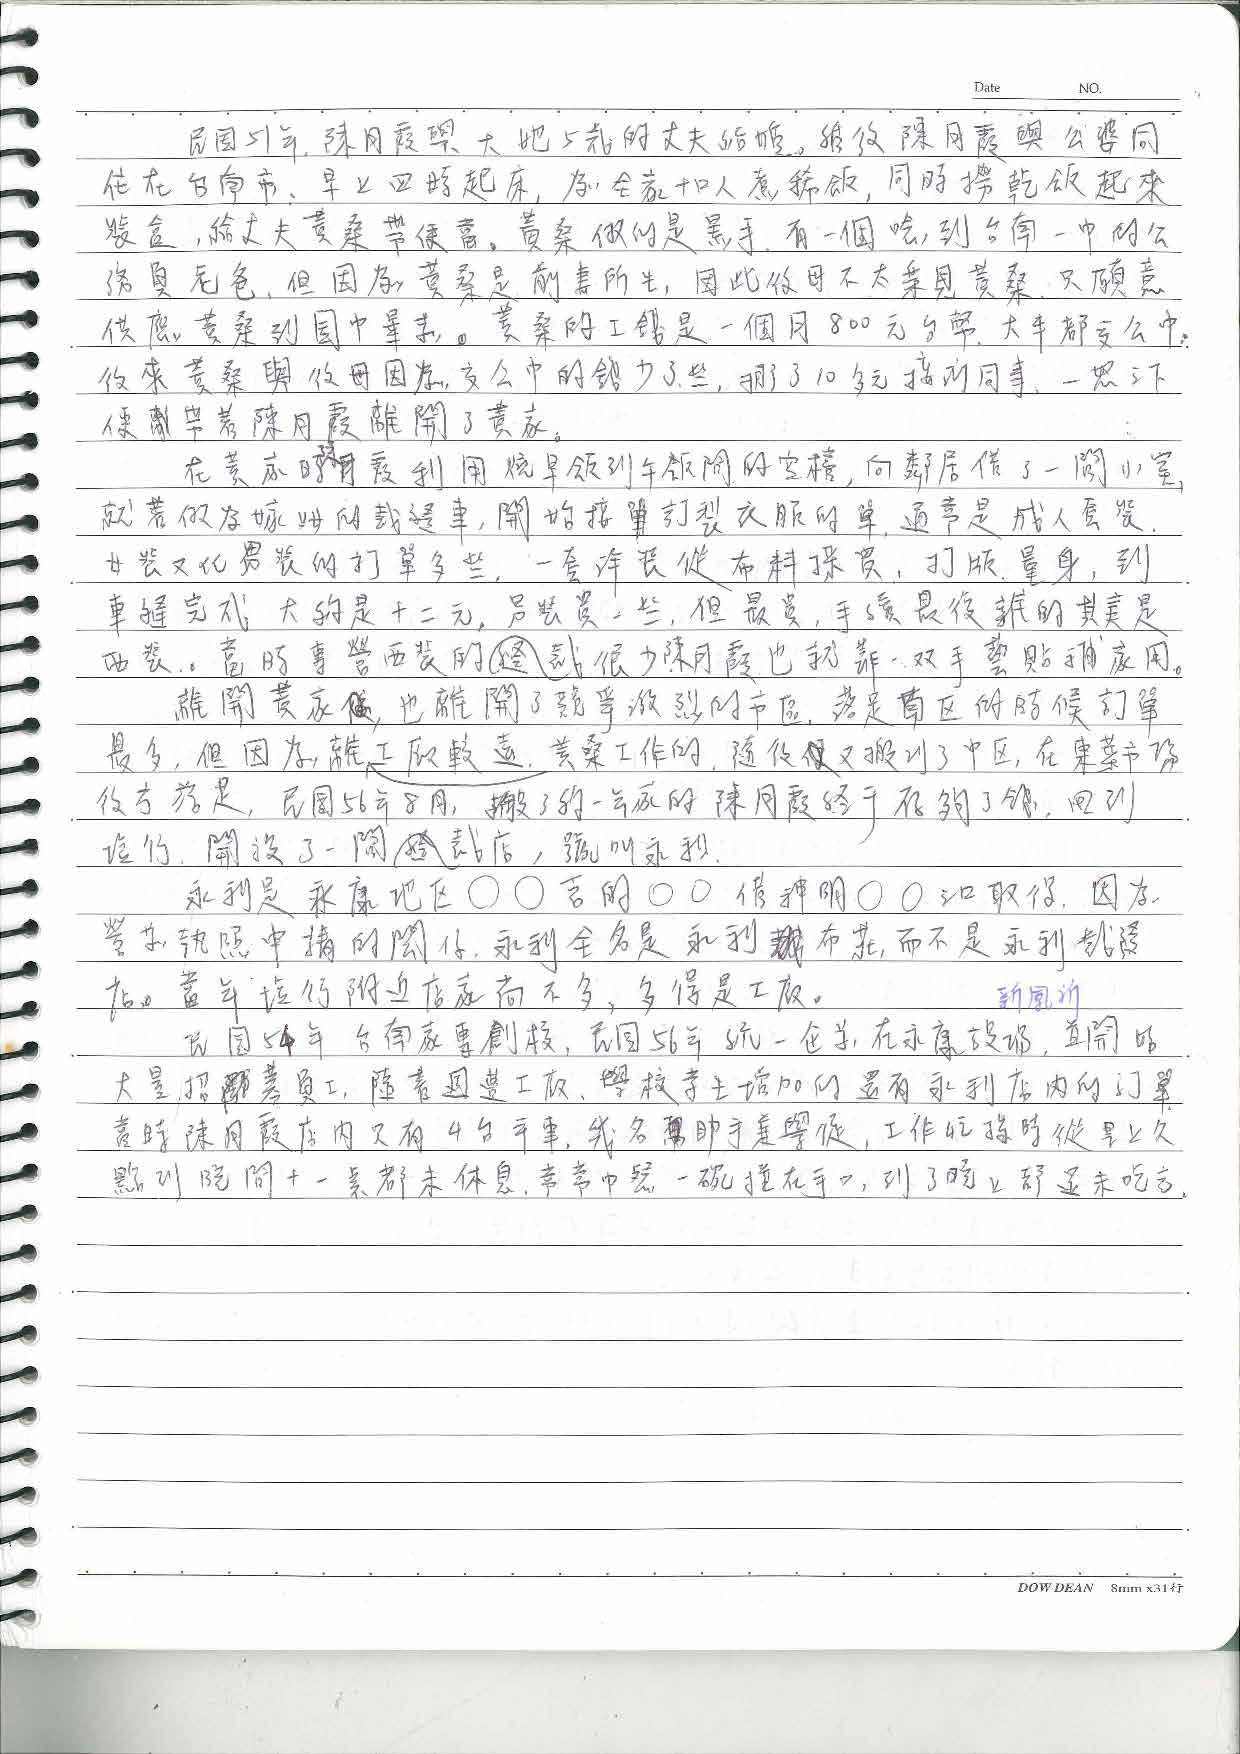 Date NO.
民国51年,陳月霞與大她5歲的丈夫結婚。婚後陳月霞與公婆同
住在台南市、早上四時起床,為全家十口人煮稀飯,同時撈乾飯起來
裝盒,給丈夫黃桑帶便當。黃桑做的是黑手,有一個唸到台南一中的公
務員老爸,但因為黃桑是前妻所生,因此後母不太喜見黃桑,只願意
供應黃桑到國中畢業。黃桑的工錢是一個月800元台幣,大半都交公中。
後來黃桑與後母因為交公中的錢少了些,挪了10多元接濟同事,一怒之下
便帶著陳月霞離開了黃家。
在黃家時陳月霞利用燒早飯到午飯間的空檔,向鄰居借了一間小室,
就著做為嫁妝的裁縫車,開始接單訂製衣服的單,通常是成人套裝,
女裝又比男裝的打單多些,一套洋裝從布料採買,打版,量身,到
車縫完成 大約是十二元,男裝貴一些,但最貴,手續最後雜的其實是
西裝。當時專營西裝的裁縫很少陳月霞也就靠一双手藝貼補家用。
離開黃家後,也離開了競爭激烈的市區,落足南区的時候訂單
最多,但因為離黃桑工作的工廠較遠,隨後便又搬到了中区,在東菜市場
後方落足,民国56年8月,搬了約一年家的陳月霞終于存夠了錢,回到
塩行,開設了一間裁縫店,號叫永利.
永利是永康地区○○言的○○借神明○○之口取得,因為
營業執照申請的關係,永利全名是永利布莊,而不是永利裁縫
店。當年塩行附近店家尚不多,多得是工廠。 新鳳祈
民国54年台南家專創校,民国56年統一企業在永康設場,並開始
大量招募員工,隨著週遭工廠、學校學生增加的還有永利店內的訂單
當時陳月霞店內只有4台平車,幾名幫助手兼學徒,工作忙操時從早上久
點到晚間十一点都未休息,常常中餐一碗擺在手口,到了晚上都還未吃完.
DOW DEAN 8mm x31行